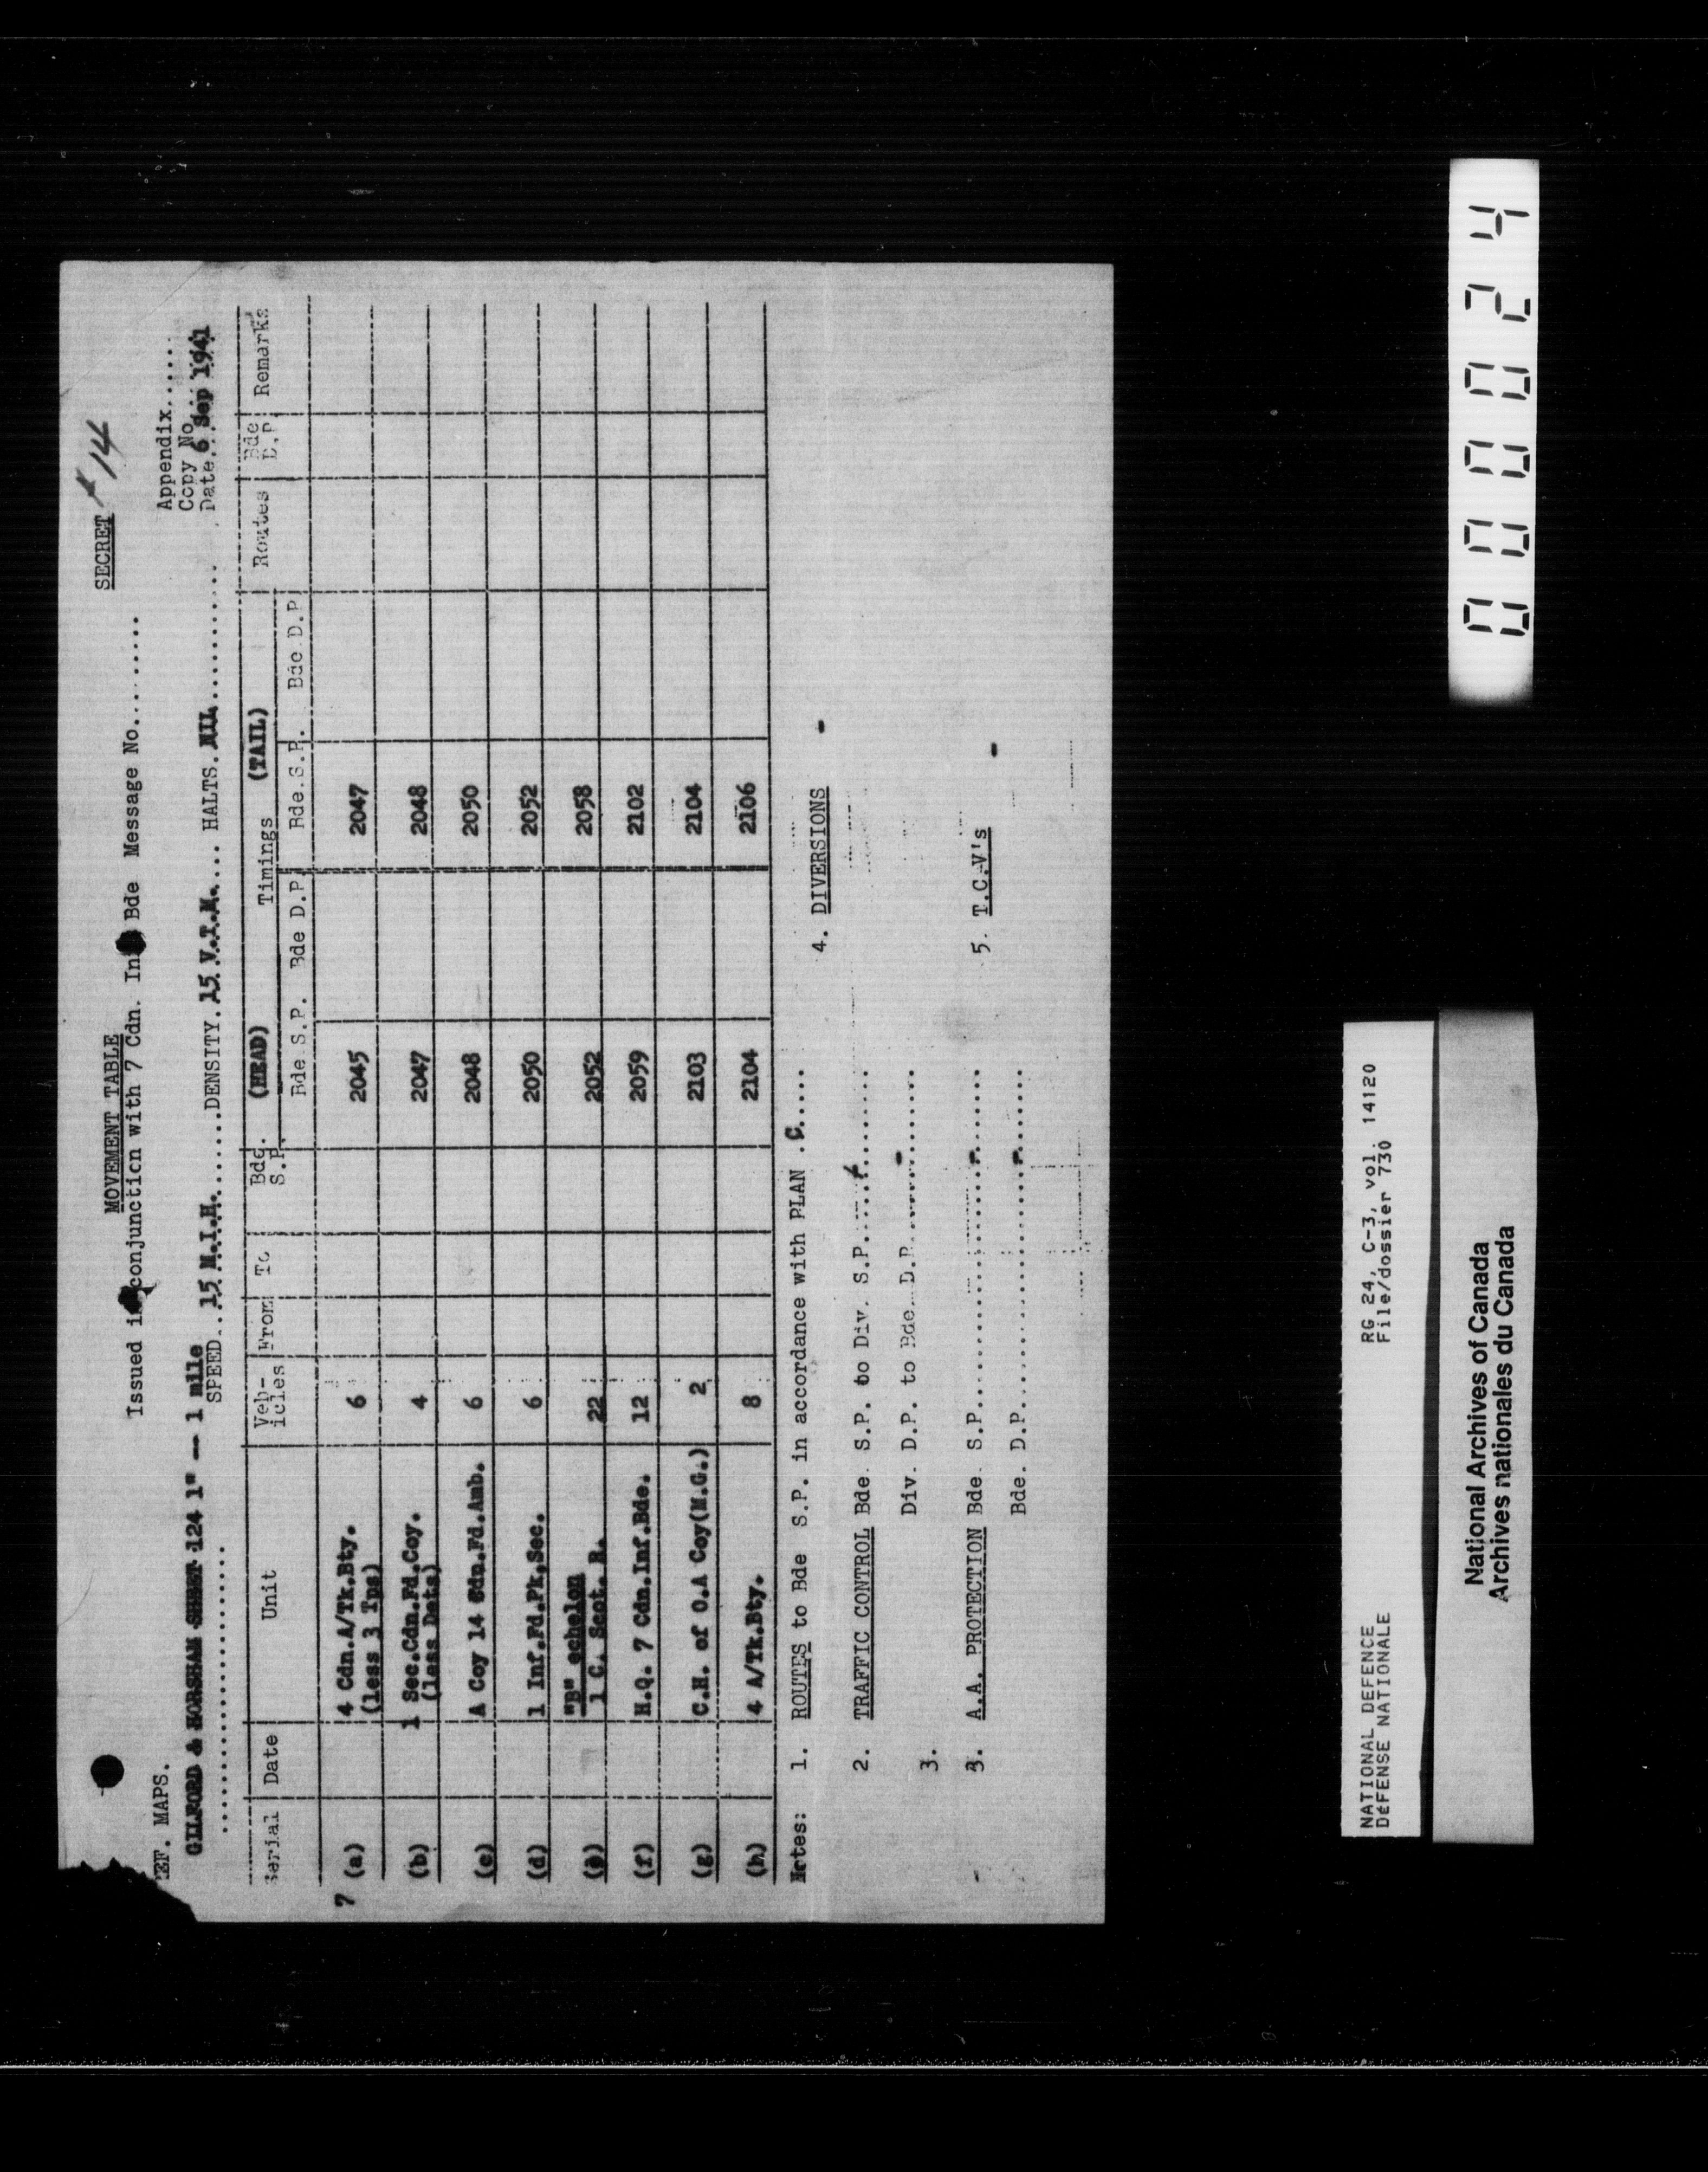 SECRET
# 14
MOVEMENT TABLE
Issued in conjunction with 7 Cdn. Inf Bde Message No.........
Appendix......
Copy No
Date. 6 Sep 1941
EF. MAPS.
GILFORD & HORSHAM SHEET 124 1" -- 1 mile
SPEED...15 M.I.H.......DENSITY.15 V.T.M.... HALTS.NIL..........
Serial Date Unit Veh-icles From To Bde. S.P. (HEAD) Timings (TAIL) Routes Bde D.P. Remarks
Bde S.P. Bde D.P. Bde.S.P. Bde D.P
7 (a) 4 Cdn.A/Tk.Bty. 6 2045 2047
(less 3 Tps)
(b) 1 Sec.Cdn.Fd.Coy. 4 2047 2048
(less Dets)
(c) A Coy 14 Cdn.Fd.Amb. 6 2048 2050
(d) 1 Inf.Fd.Pk.Sec. 6 2050 2052
(e) "B" echelon
1 C. Scot. R. 22 2052 2058
(f) H.Q. 7 Cdn.Inf.Bde. 12 2059 2102
(g) C.H. of O.A Coy(M.G.) 2 2103 2104
(h) 4 A/Tk.Bty. 8 2104 2106
Notes: 1. ROUTES to Bde S.P. in accordance with PLAN .C....
2. TRAFFIC CONTROL Bde. S.P. to Div. S.P.............
3. Div. D.P. to Bde. D.P.............
3. A.A. PROTECTION Bde. S.P.........................
Bde. D.P.........................
4. DIVERSIONS -
5. T.C.V's -
NATIONAL DEFENCE
DéFENSE NATIONALE
RG 24, C-3, vol. 14120
File/dossier 730
National Archives of Canada
Archives nationales du Canada
000024